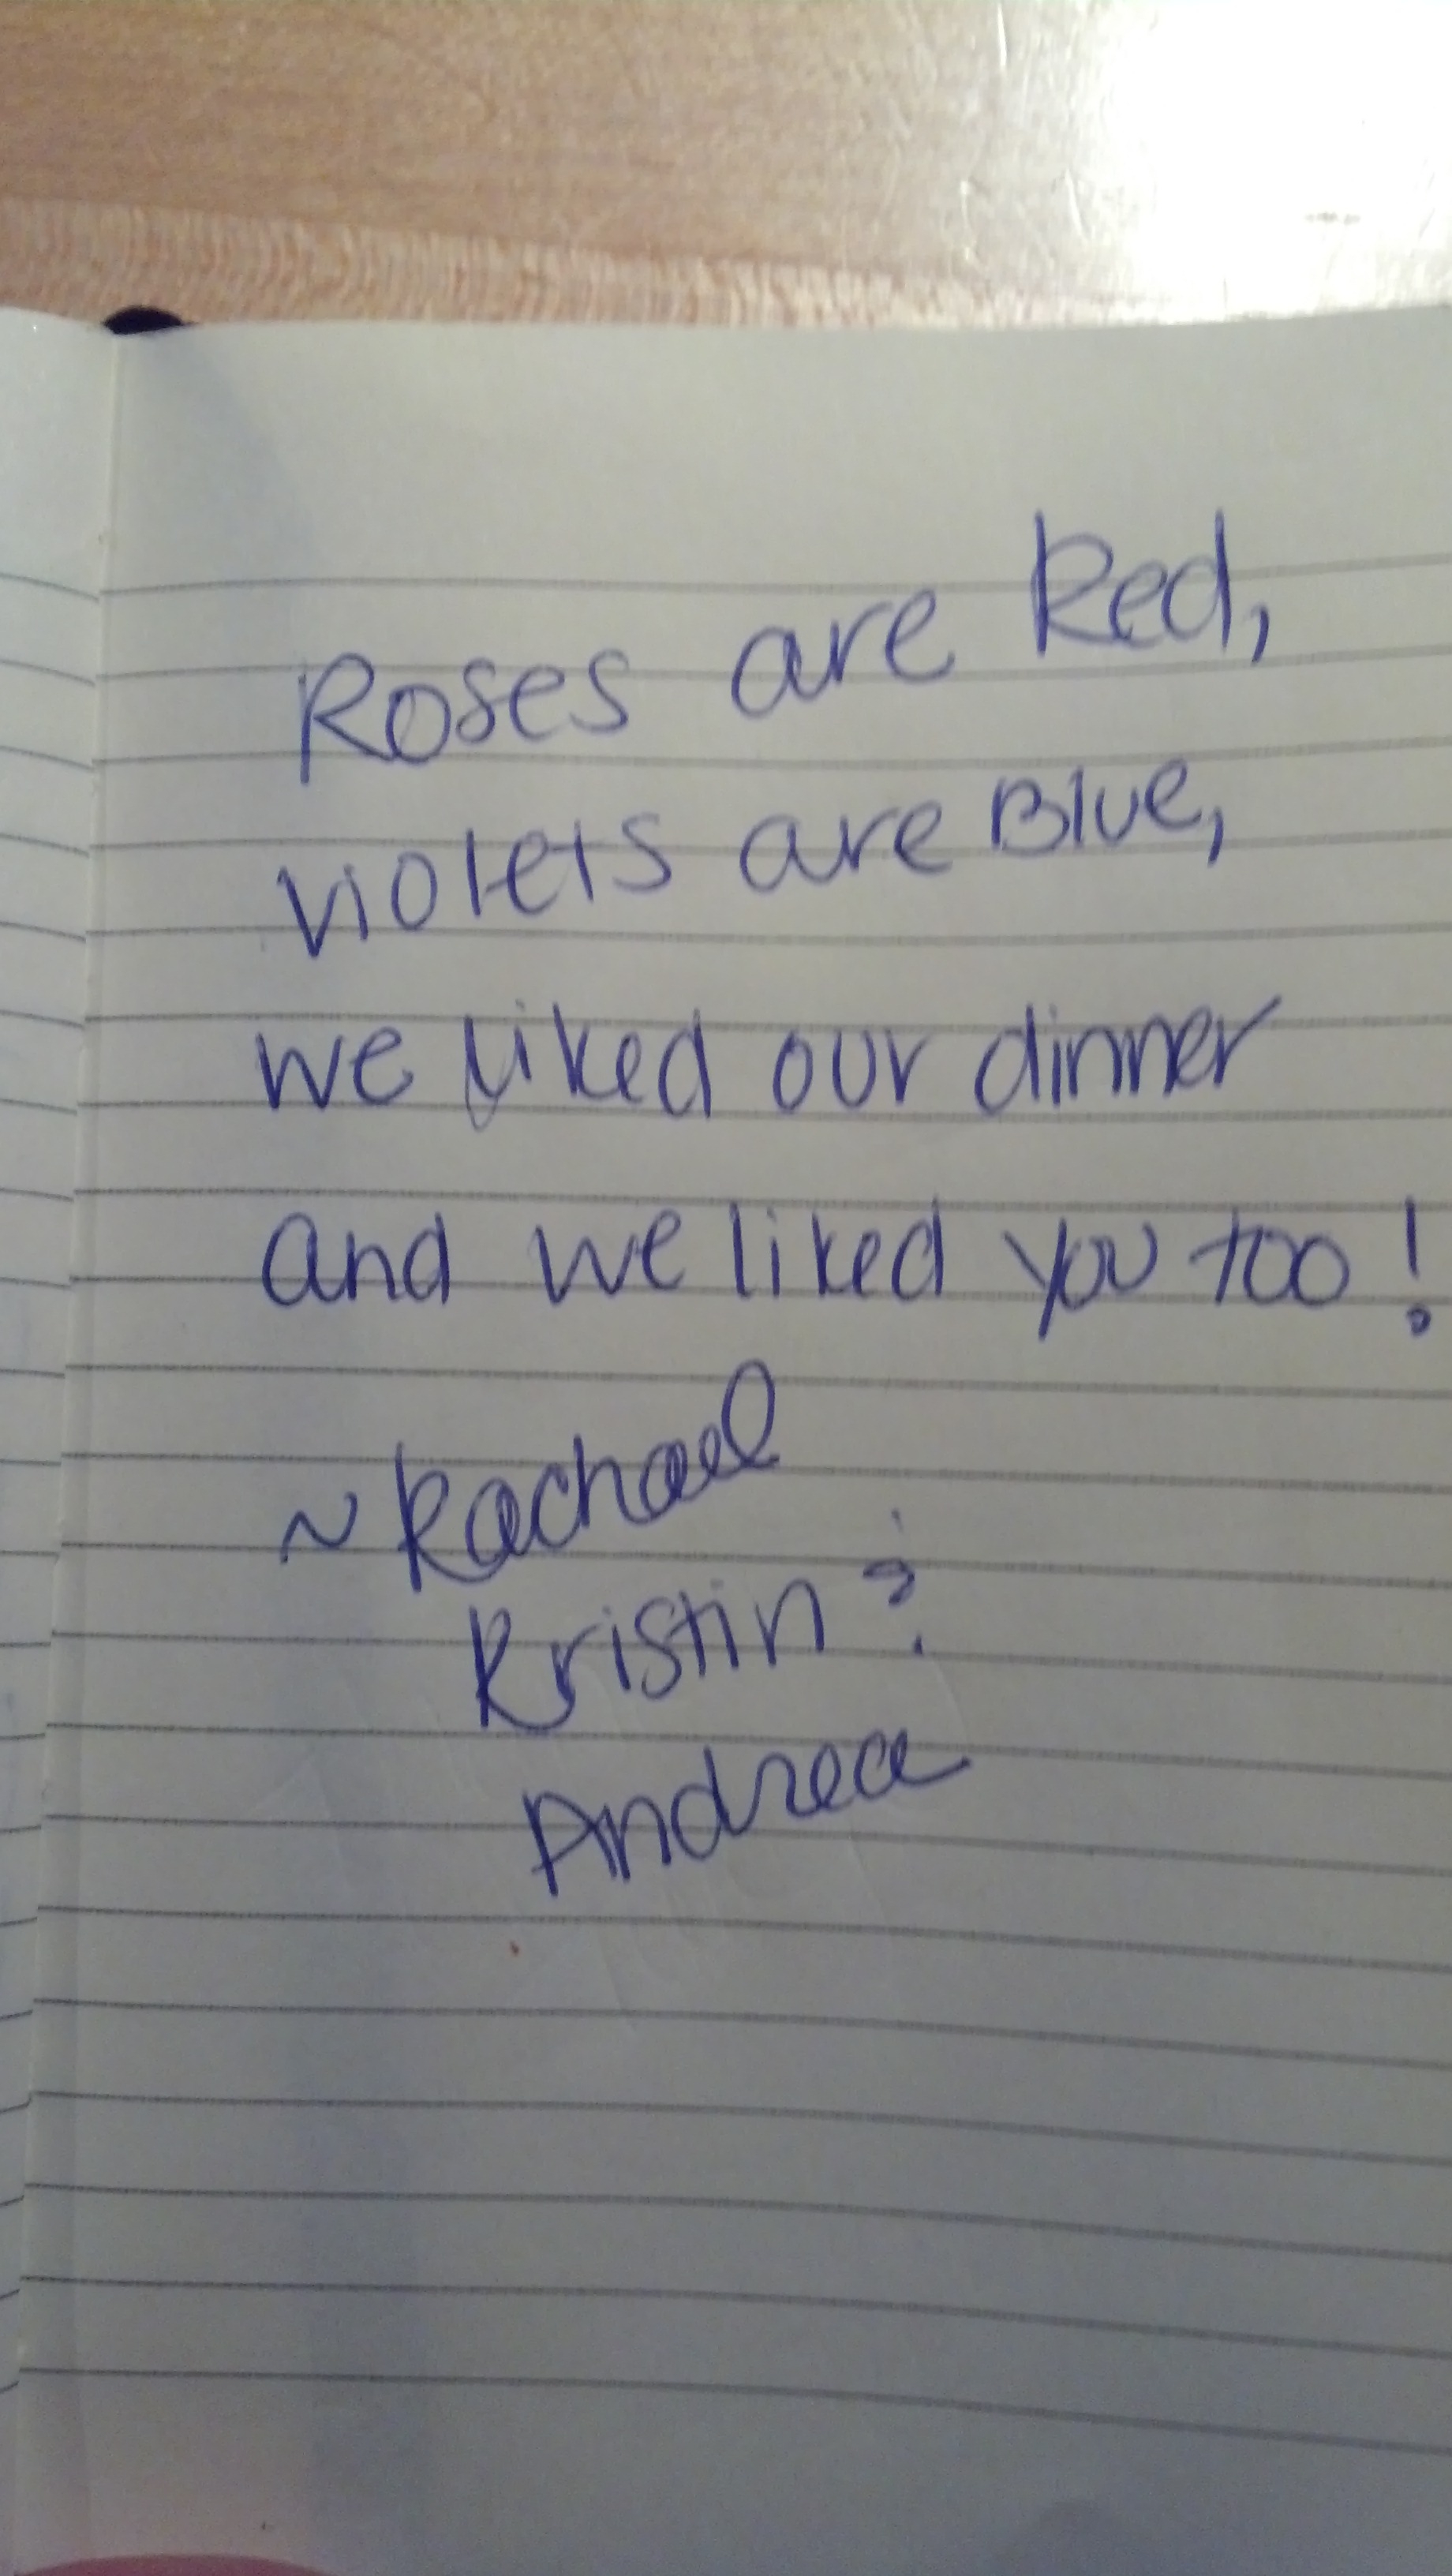 Roses are Red,
violets are Blue,
we liked our dinner
and we liked you too!
~ Rachael
Kristin &
Andrea